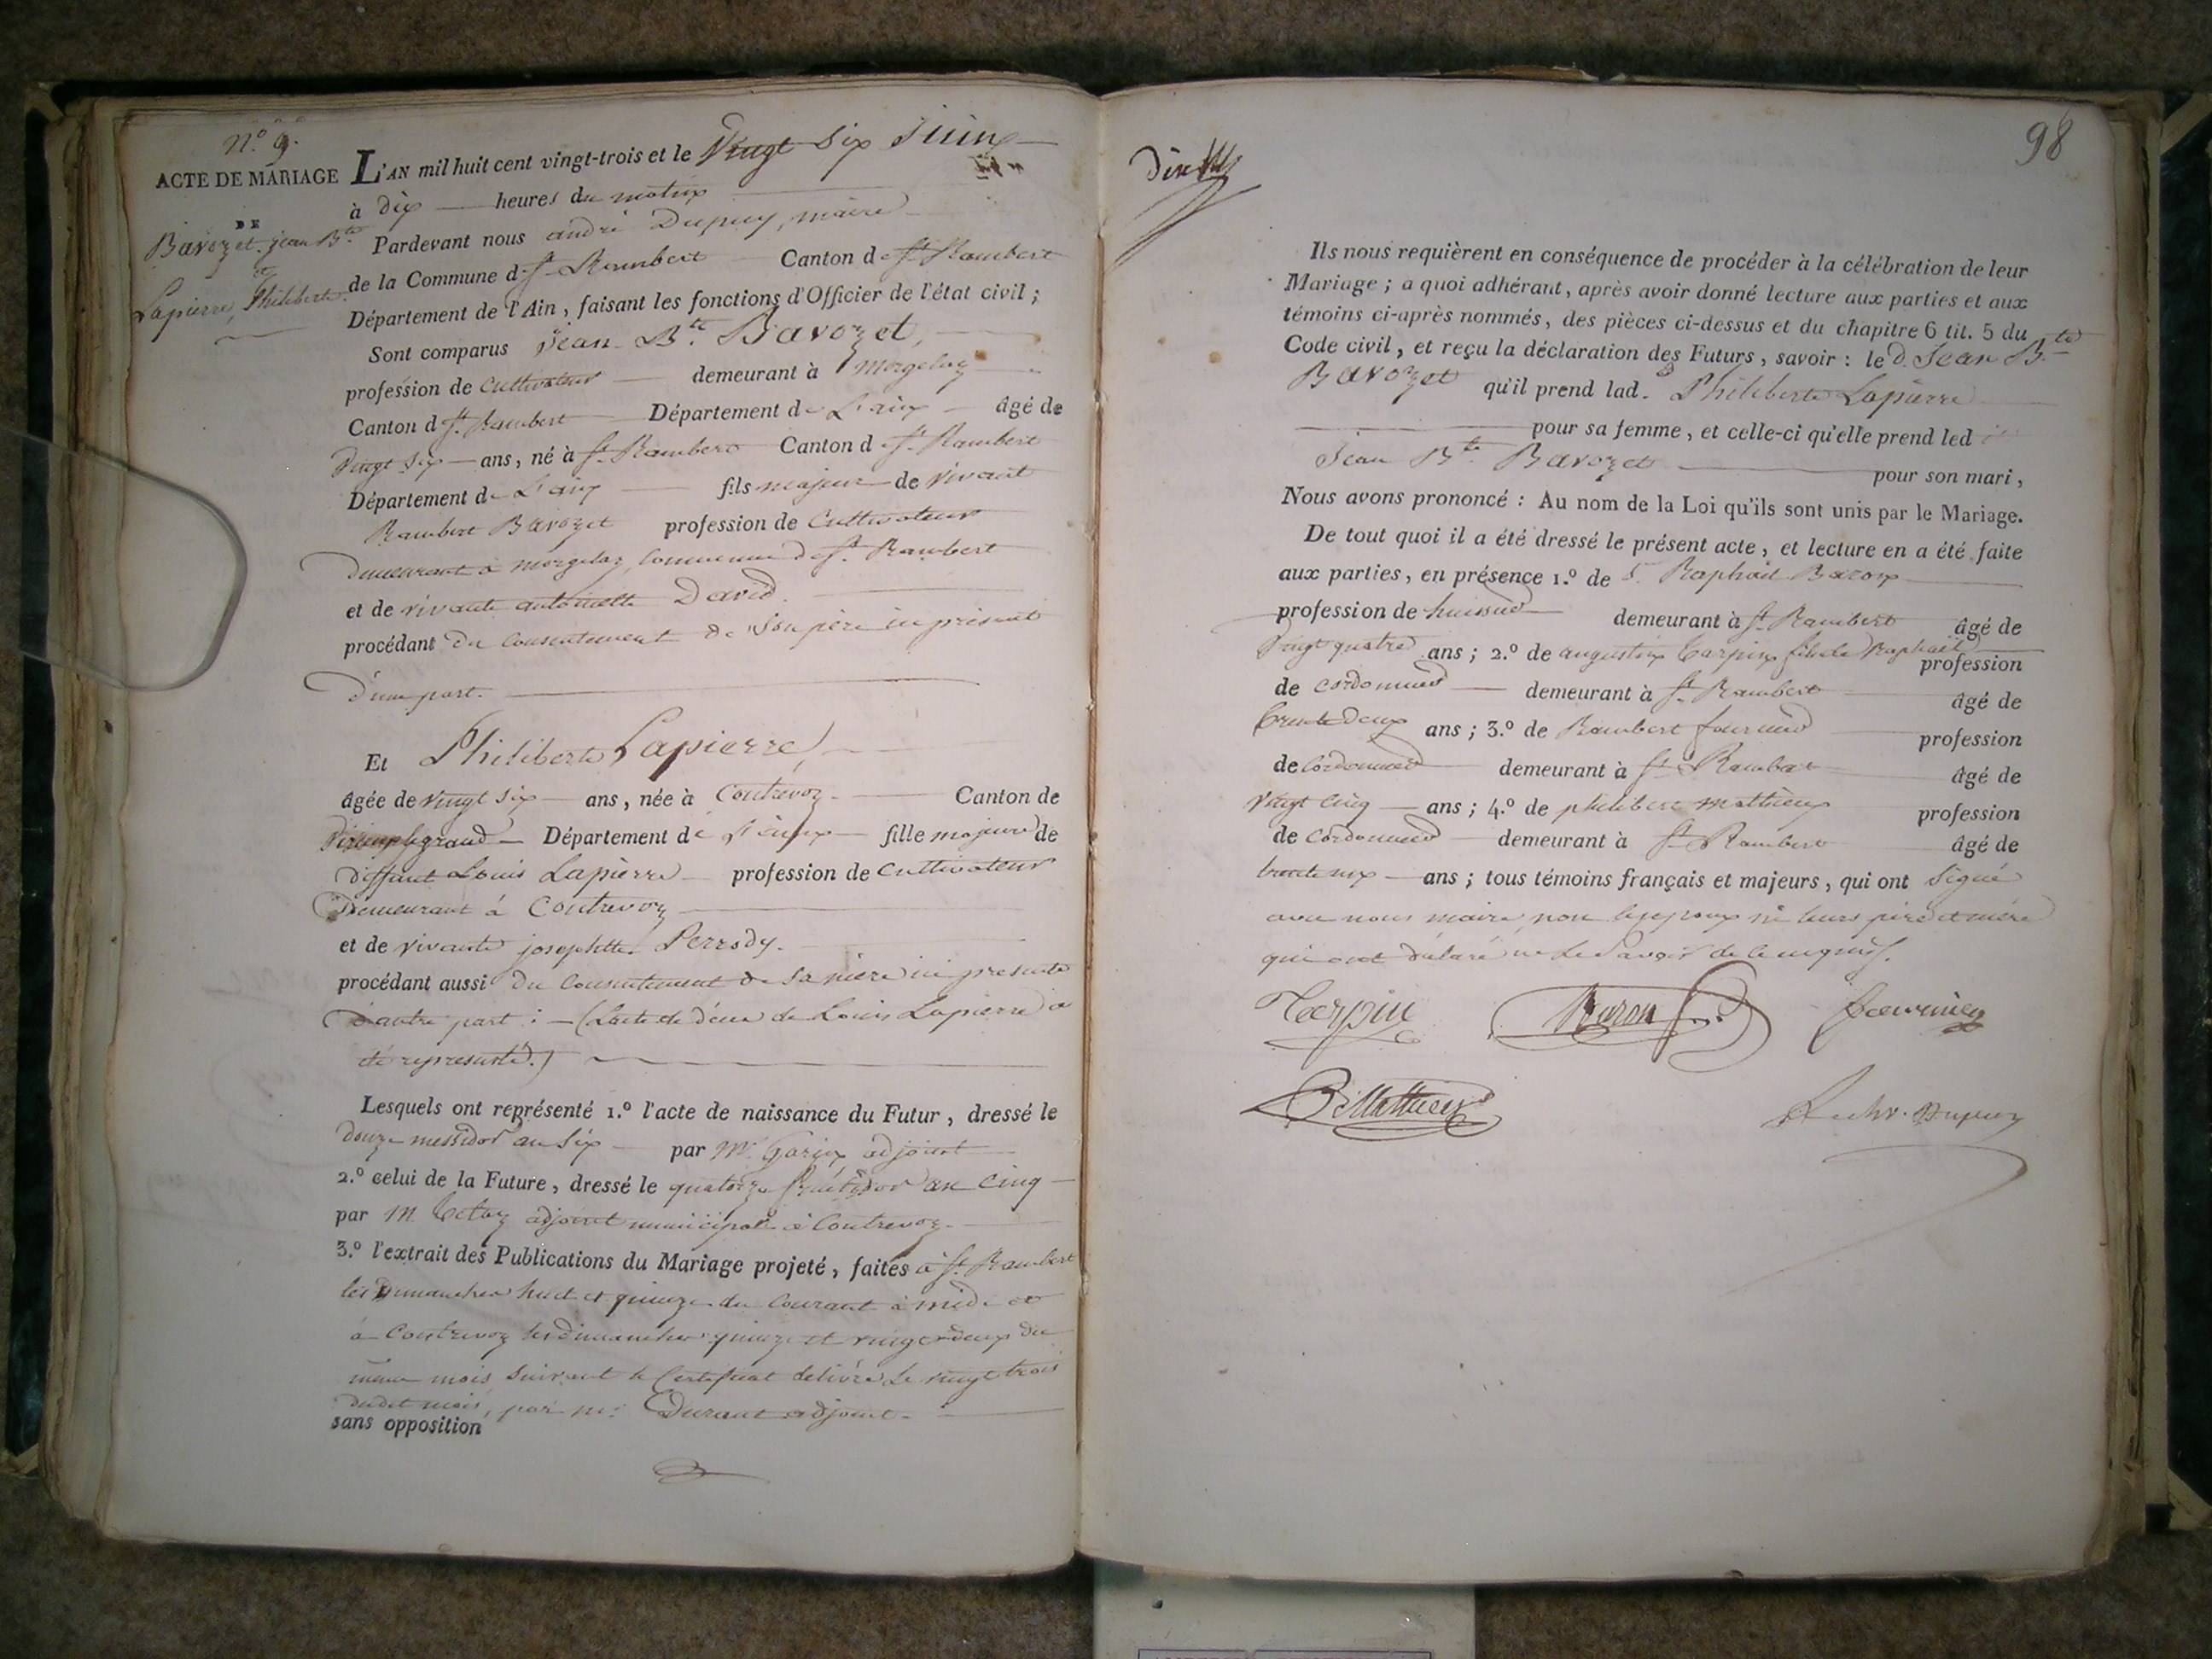 N.º 9.
ACTE DE MARIAGE
DE
Bavozet jean B.te
et
Lapierre, Philiberte.
L'AN mil huit cent vingt-trois et le Vingt six Juin
à dix heures du matin
Pardevant nous andré Dupuy, maire
de la Commune d St. Rambert Canton de St. Rambert
Département de l'Ain, faisant les fonctions d'Officier de l'état civil ;
Sont comparus Jean B.te Bavozet,
profession de Cultivateur demeurant à Morgelaz
Canton d St. Rambert Département de L'ain âgé de
Vingt six ans, né à St. Rambert Canton de St. Rambert
Département de L'ain fils majeur de vivant
Rambert Bavozet profession de Cultivateur
demeurant à morgelaz, Commune de St. Rambert
et de vivante antoinette David.
procédant du Consentement de Son père ici présent
d'une part.
Et Philiberte Lapierre,
âgée de vingt six ans, née à Contrevoz Canton de
Virieu le grand Département de L'ain fille majeure de
deffunt Louis Lapierre profession de Cultivateur
Demeurant à Contrevoz
et de vivante josephtte Perrody.
procédant aussi du Consentement de Sa mère ici presente
d'autre part : (L'acte de décès de Louis Lapierre a
été representé.)
Lesquels ont représenté 1.º l'acte de naissance du Futur, dressé le
douze messidor an Six par Mr. Garin, adjoint
2.º celui de la Future, dressé le quatorze fructidor an Cinq
par M. adjoint municipal à Contrevoz.
3.º l'extrait des Publications du Mariage projeté, faites à St. Rambert
les Dimanches huit et quinze du Courant à midi et
à Contrevoz les dimanches quinze et vingt deux du
même mois suivant le Certificat délivré le vingt trois
dudit mois, par Mr. Durant adjoint.
sans opposition
98
Ils nous requièrent en conséquence de procéder à la célébration de leur
Mariage ; a quoi adhérant, après avoir donné lecture aux parties et aux
témoins ci-après nommés, des pièces ci-dessus et du chapitre 6 tit. 5 du
Code civil, et reçu la déclaration des Futurs, savoir : le d. Jean B.te
Bavozet qu'il prend lad. Philiberte Lapierre
pour sa femme, et celle-ci qu'elle prend led it
Jean B.te Bavozet pour son mari,
Nous avons prononcé : Au nom de la Loi qu'ils sont unis par le Mariage.
De tout quoi il a été dressé le présent acte, et lecture en a été faite
aux parties, en présence 1.º de S. Raphaël Baron
profession de huissier demeurant à St. Rambert âgé de
Vingt quatre ans ; 2.º de augustin Tarpin fils de Raphaël profession
de Cordonnier demeurant à St. Rambert âgé de
trente deux ans ; 3.º de Rambert fournier profession
de Cordonnier demeurant à St. Rambert âgé de
Vingt Cinq ans ; 4.º de philibert Mathieux profession
de Cordonnier demeurant à St. Rambert âgé de
ans ; tous témoins français et majeurs, qui ont Signé
avec nous maire, non les epoux ni leurs père et mère
qui ont déclaré ne le Savoir de ce enquis.
Tarpin Baron fournier
Mathieux Dupuy